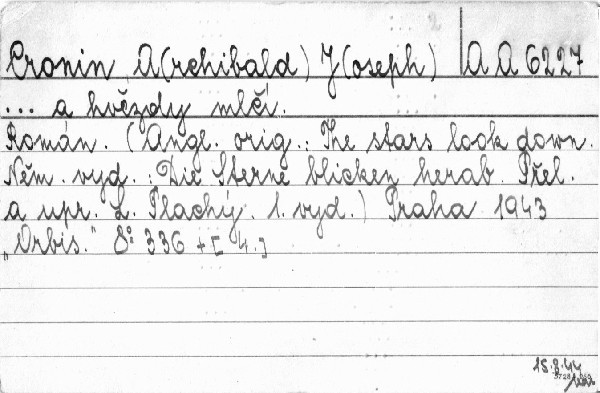 Cronin, A(rchibald) J(oseph) AA 6227
... a hvězdy mlčí.
Román. (Angl. orig.: The stars look down.
Něm. vyd.: Die Sterne blicken herab. Přel.
a upr. L. Plachý. 1. vyd.) Praha 1943
„Orbis." 8° 336 + [4.]
18.8.44